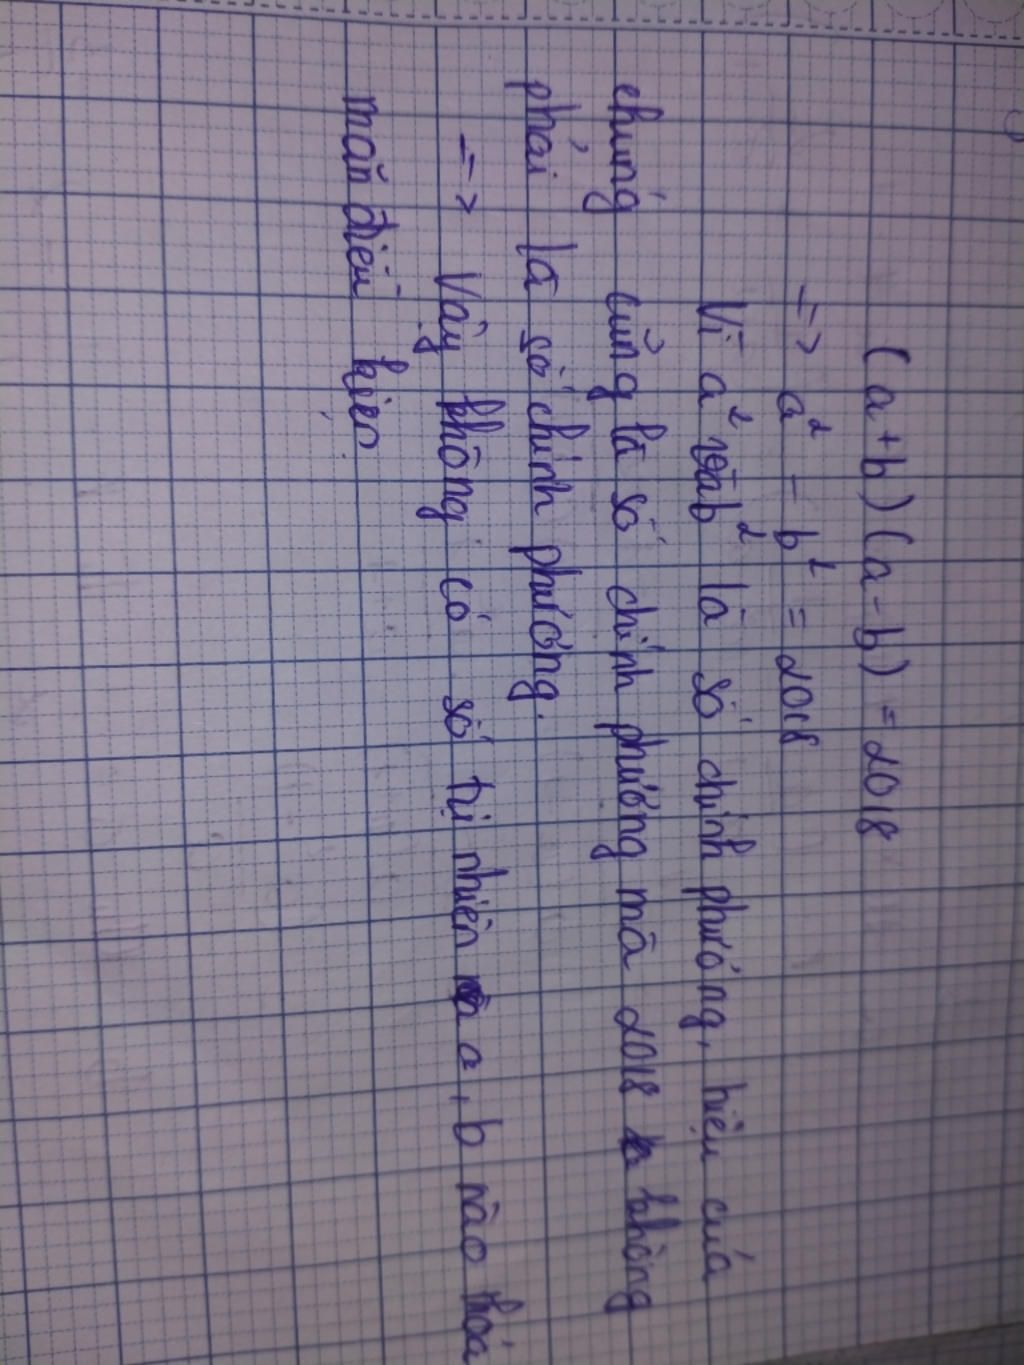 (a+b)(a-b) = 2018
=> a² - b² = 2018
Vì a² và b² là số chính phương, hiệu của
chúng cũng là số chính phương mà 2018 không
phải là số chính phương.
=> Vậy không có số tự nhiên a, b nào thoả
mãn điều kiện